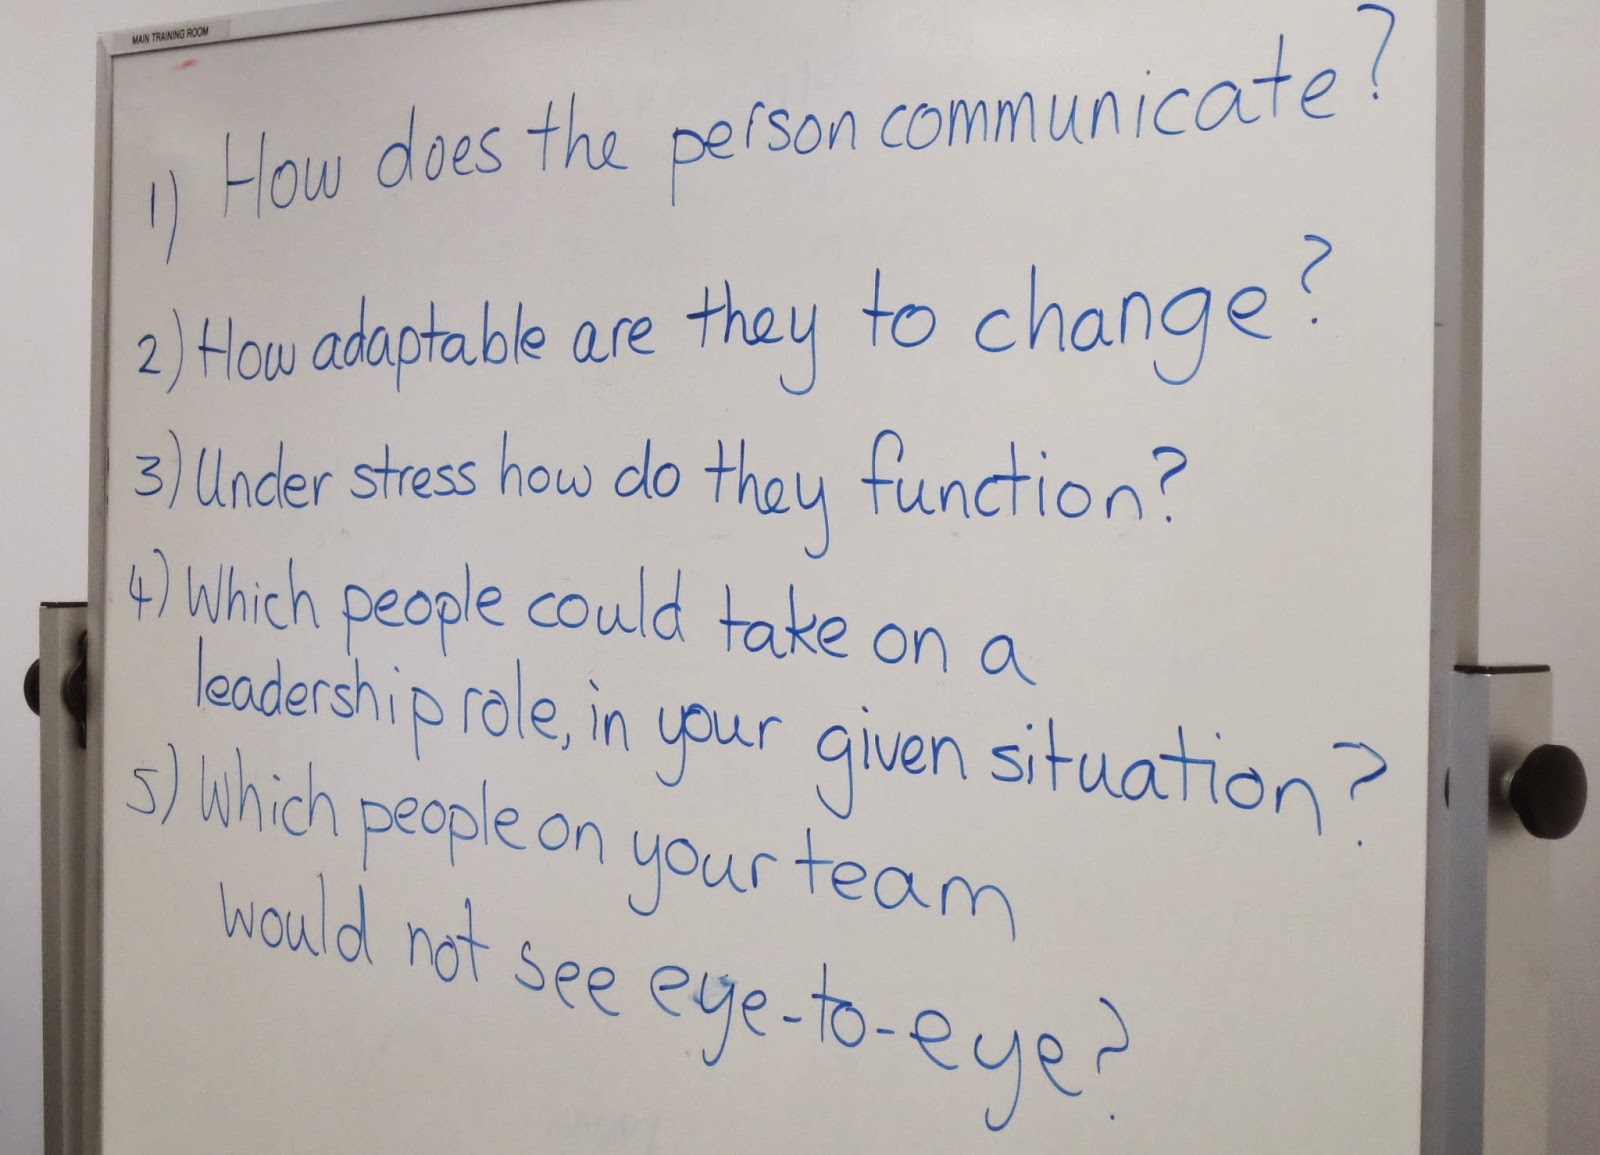 MAIN TRAINING ROOM
1) How does the person communicate?
2) How adaptable are they to change?
3) Under stress how do they function?
4) Which people could take on a
leadership role, in your given situation?
5) Which people on your team
would not see eye-to-eye?